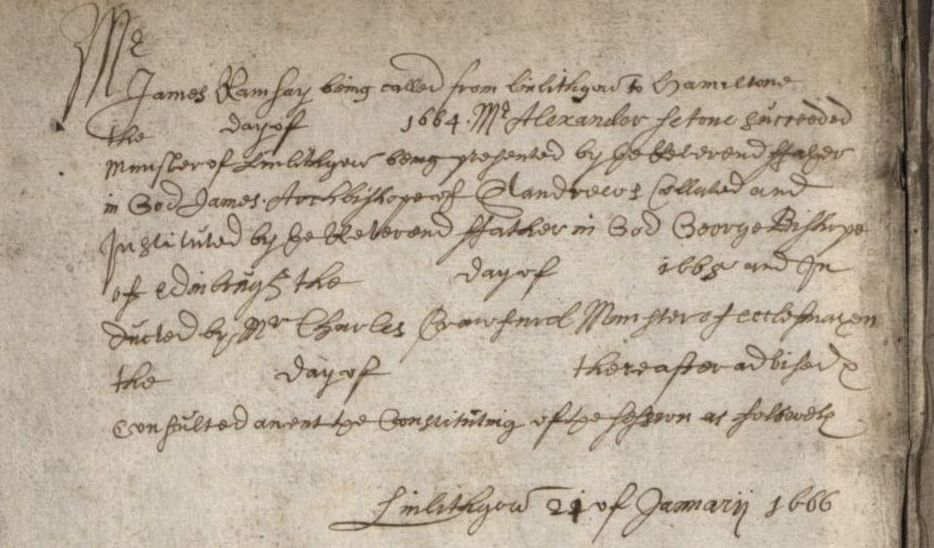 Mr
James Ramsay being called from Linlithgow to Hamiltone
the day of 1664. Mr Alexander Setone succeeded
Minister of Linlithgow being presented by ye Reverend ffather
in God James Archbishope of St Andrews Collated and
Instituted by ye Reverend ffather in God George Bishope
of Edinburgh the day of 1665 and In
ducted by Mr Charles Crawfurd Minister of ecclesmachen
the day of thereafter advised &
Consulted anent the Constituting of the session as followeth
Linlithgow 21 of Januarij 1666